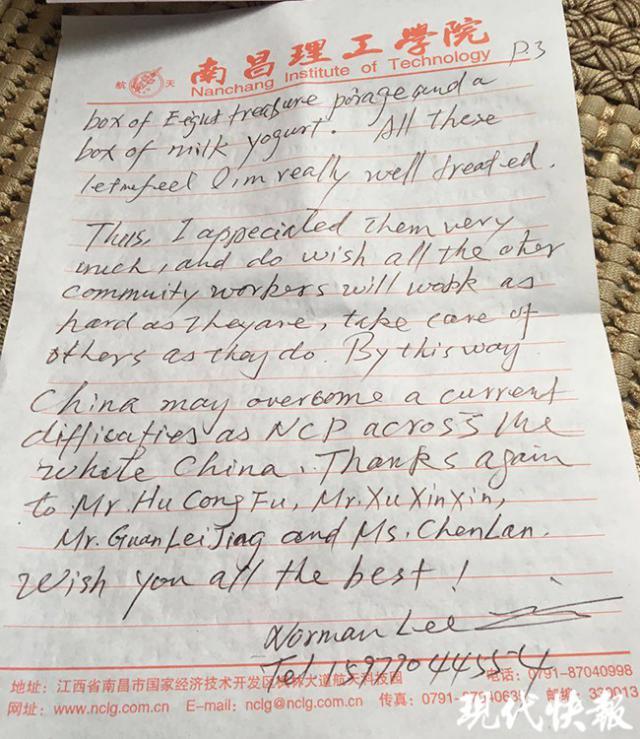 航 天 南昌理工学院
Nanchang Institute of Technology P.3
box of Eight treasure porage and a
box of milk yogurt. All these
let me feel I'm really well treated.
Thus, I appeciated them very
much, and do wish all the other
commuity workers will work as
hard as they are, take care of
others as they do. By this way
China may overcome a current
difficaties as NCP across the
whole China. Thanks again
to Mr. Hu Cong Fu, Mr. Xu XinXin,
Mr. Guan Lei Jing and Ms. Chen Lan.
Wish you all the best!
Norman Lee
Tel
地址：江西省南昌市国家经济技术开发区 大道航天科技园 电话：0791-87040998
网址：www.nclg.com.cn E-mail：nclg@nclg.com.cn 传真：邮编：
现代快报